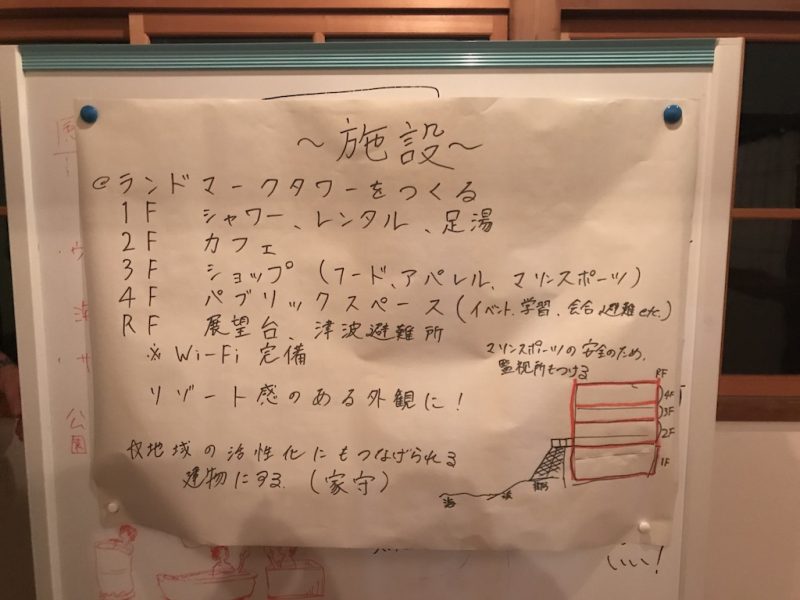 ～施設～
@ランドマークタワーをつくる
1F シャワー、レンタル、足湯
2F カフェ
3F ショップ (フード、アパレル、マリンスポーツ)
4F パブリックスペース (イベント、学習、会合、避難etc.)
RF 展望台、津波避難所
※Wi-Fi完備
マリンスポーツの安全のため、
監視所もつける
リゾート感のある外観に!
地域の活性化にもつなげられる
建物にする。(家守)
RF
4F
3F
2F
1F
海
浜
公園
いい!